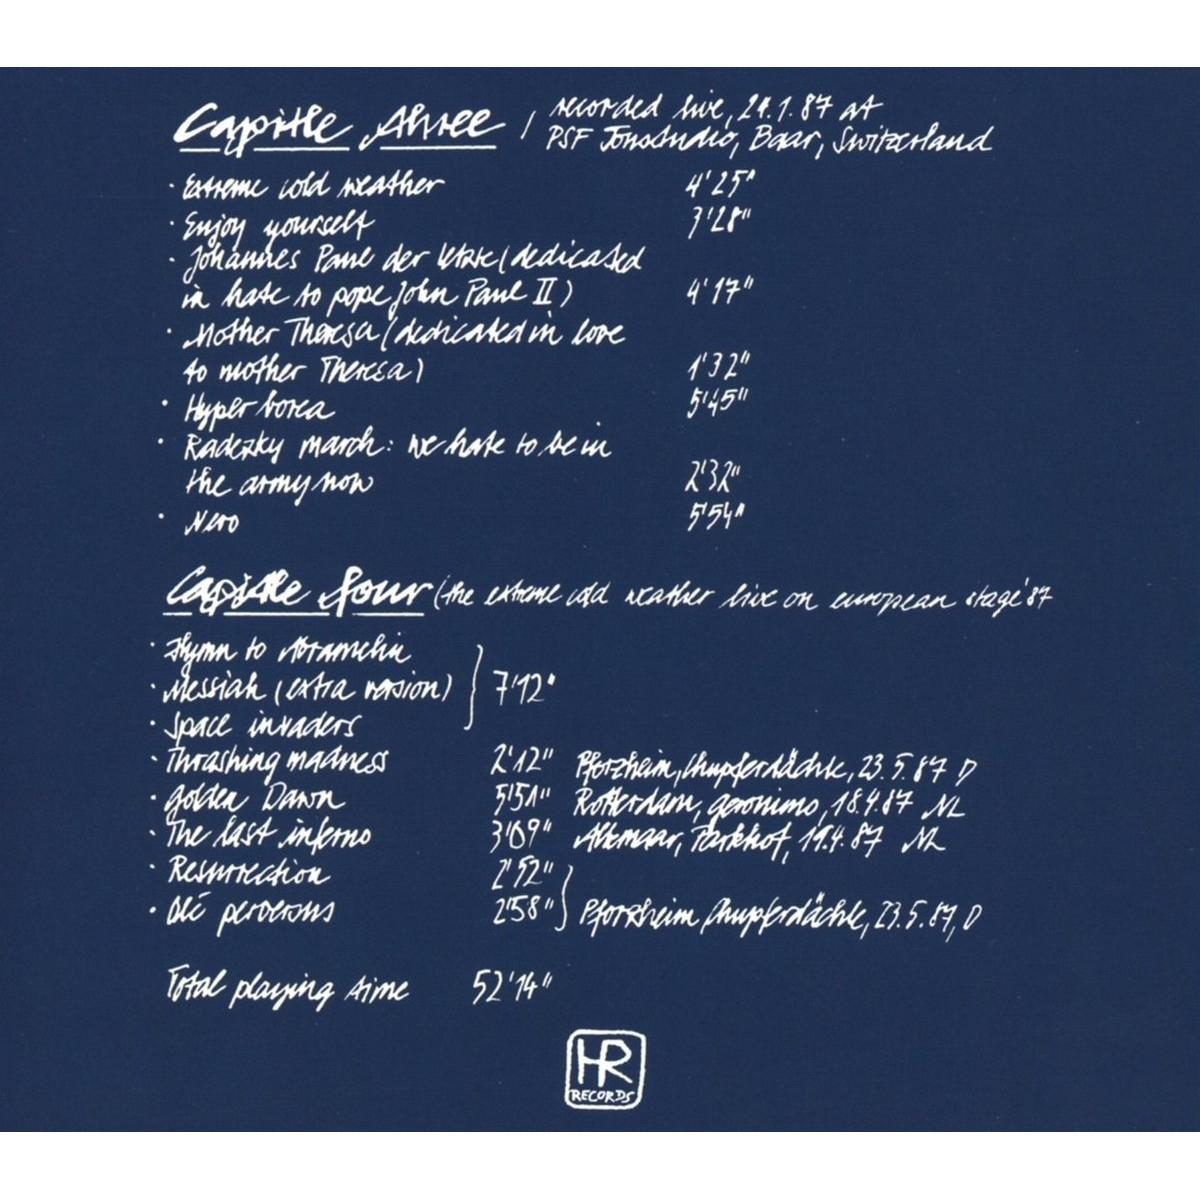 Capitle three / recorded live, 24.1.87 at
PSF Tonstudio, Baar, Switzerland
· Extreme cold weather 4'25"
· Enjoy yourself 3'28"
· Johannes Paul der letzte (dedicated
in hate to pope John Paul II) 4'17"
· Mother Theresa (dedicated in love
to mother Theresa) 1'32"
· Hyper borea 5'45"
· Radezky march: we hate to be in
the army now 2'32"
· Nero 5'54"
Capitle four (the extreme cold weather live on european stage '87
· Hymn to Abramelin
· Messiah (extra version) 7'12"
· Space invaders
· Thrashing madness 2'12" Pforzheim, 23.5.87 D
· Golden Dawn 5'51" Rotterdam, geronimo, 18.4.87 NL
· The last inferno 3'09" Alkmaar, Parkhof, 19.4.87 NL
· Resurrection 2'52"
· Olé perversus 2'58" Pforzheim 23.5.87, D
Total playing time 52'14"
HR
RECORDS